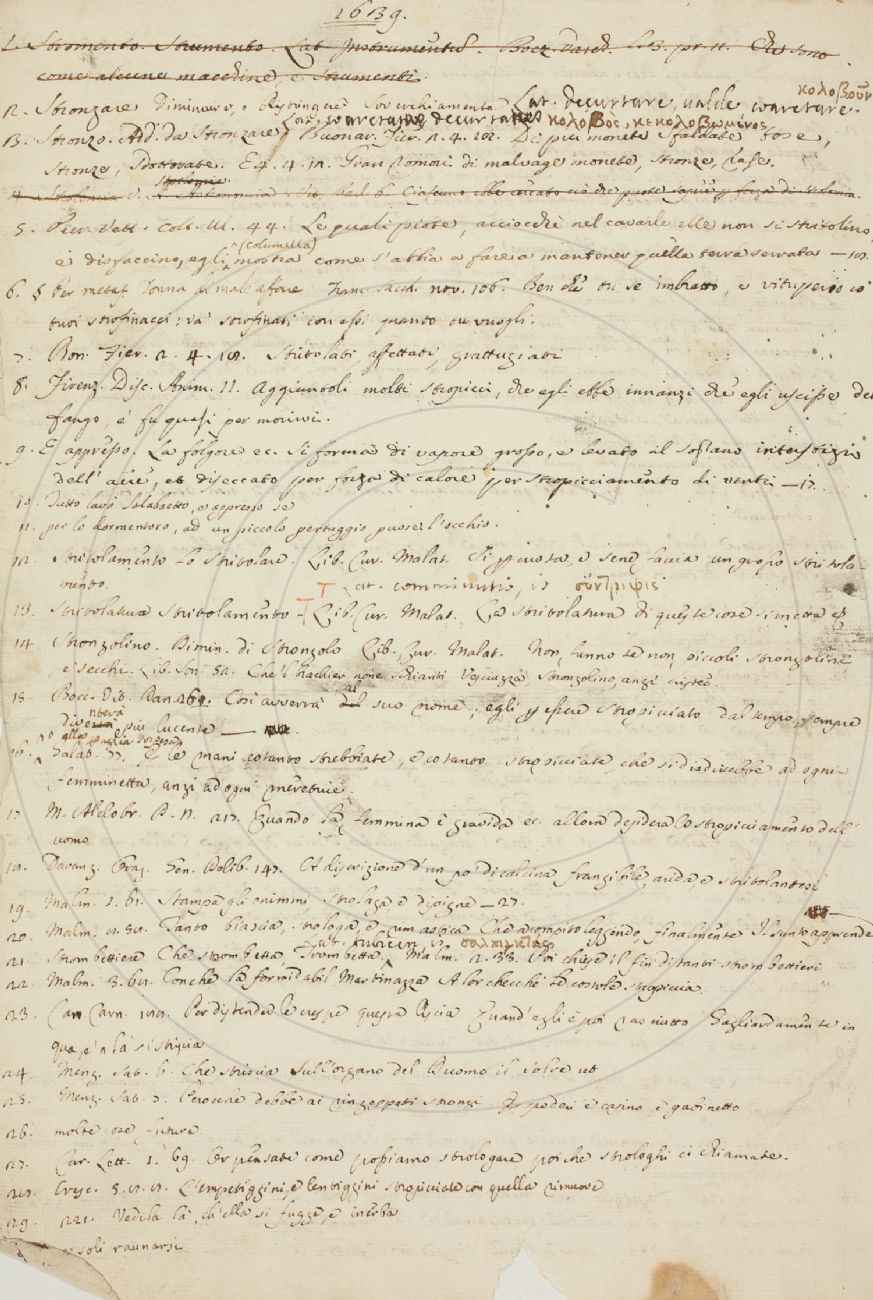 1639.
1. Stromento. Strumento. Lat. Instrumentũ. Bocz. Varch. l. 3. pr. 11. Che sono
come alcune macchine, e strumenti.
κολοβοῦν
2. Stronzare Diminuire, o Ristringere Soverchiamente Lat. decurtare, valde coarctare.
Lat. coarctatus decurtatus κολοβὸς, κεκολοβωμένος
3. Stronzo. Add. da Stronzare. Buonar. Fier. 2. 4. 102. Di più monete sfaldate tose,
Stronze, E. 4. 4. 12. Gran romori di malvage monete, stronze, false.
5. Pier. Vett. Colt. Ul. 44. Le quali piote, acciocchè nel cavarle elle non si stritolino,
(columella)
e disfaccino, egli mostra come s'abbia a fare a mantener quella terra serrata
6. § Per metaf. Donna di male affare Franc. Sacch. nov. 106. Ben chè tu se imbratto, e vituperio co'
tuoi strofinacci: va' strofinati con essi quanto tu vuogli.
7. Bon. Fier. 2. 4. 18. Stritolati, affettati, grattugiati
8. Firenz. Disc. Anim. 11. Aggiuntoli molti stropicci, che egli ebbe innanzi chè egli uscisse del
fango, e' fu quasi per morirvi.
9. E appresso. La folgore ec. si forma di vapore grosso, e levato al sofrano interstizio
dell' aere, et diseccato per forza di calore per stropicciamento di venti — 17.
10. Tutto lavò Salabaetto, e appresso se
11. per lo dormentoro, ad un piccolo pertuggio puose l'occhio.
12. Stritolamento Lo Stritolare. Lib. Cur. Malat. Si pesta, e sene faccia un grosso stritola-
mento. Lat. comminutio, is σύντριψις
13. Stritolatura Stritolamento Lib. Cur. Malat. La stritolatura di queste cose si metta
14. Stronzolino. Dimin. di Stronzolo Lib. Cur. Malat. Non fanno se non piccoli stronzolini,
e secchi. Lib. Son. 52. Stronzolino, anzi cristeo.
15. Bocc. Vit. Dan. 269. Così avverrà al suo nome; egli per esser stropicciato dal tempo, sempre
diventerà più lucente —
16. Galat. 77. E le mani cotanto strebbiate, e cotanto stropicciate, che si disdirebbe ad ogni
femminetta, anzi ad ogni meretrice.
17. M. Aldobr. P. N. 217. Quando la femmina è gravida ec. allora desidera lo stropicciamento dell'
uomo
18. Davanz. Oraz. Gen. Delib. 147. A discrizione d'un po' di calcina frangibile, arida, e stritolantesi
19. Malm. 1. 61. Stampa gli enimmi, strolaga e dipigne — 27.
20. Malm. Tanto biascia, strologa, e rumastica Che a conto leggendo, finalmente Il sunto apprende
Lat. tubicen, is σαλπιγκτής
21. Strombettiere Che strombetta, Trombetta, Malm. 2. 33. Poi chiese il fin di tanti strombettieri
22. Malm. 3. 61. Conchè la formidabil Martinazza A lor checchè le costole stropiccia
23. Can. Carn. Per distender le crespe questa liscia Quand'egli è poi rasciutto Gagliardamente in
qua, e 'n là si striscia
24. Menz. Sat. 6. Che striscia Sull'organo del Duomo il solre ut
25. Menz. Sat. 7. Perocchè debbe ai rinzeppati stronzi podere e casino, e gabinetto
26. molte cose future
27. Car. Lett. 1. 69. Or pensate come possiamo strologare poiche strologhi ci chiamate.
28. Cresc. 5. L'empetiggini, e lentiggini stropicciate con quella rimuove
29. 221. Vedila là, ch'ella si fugge, e inerba
soli raunarsi